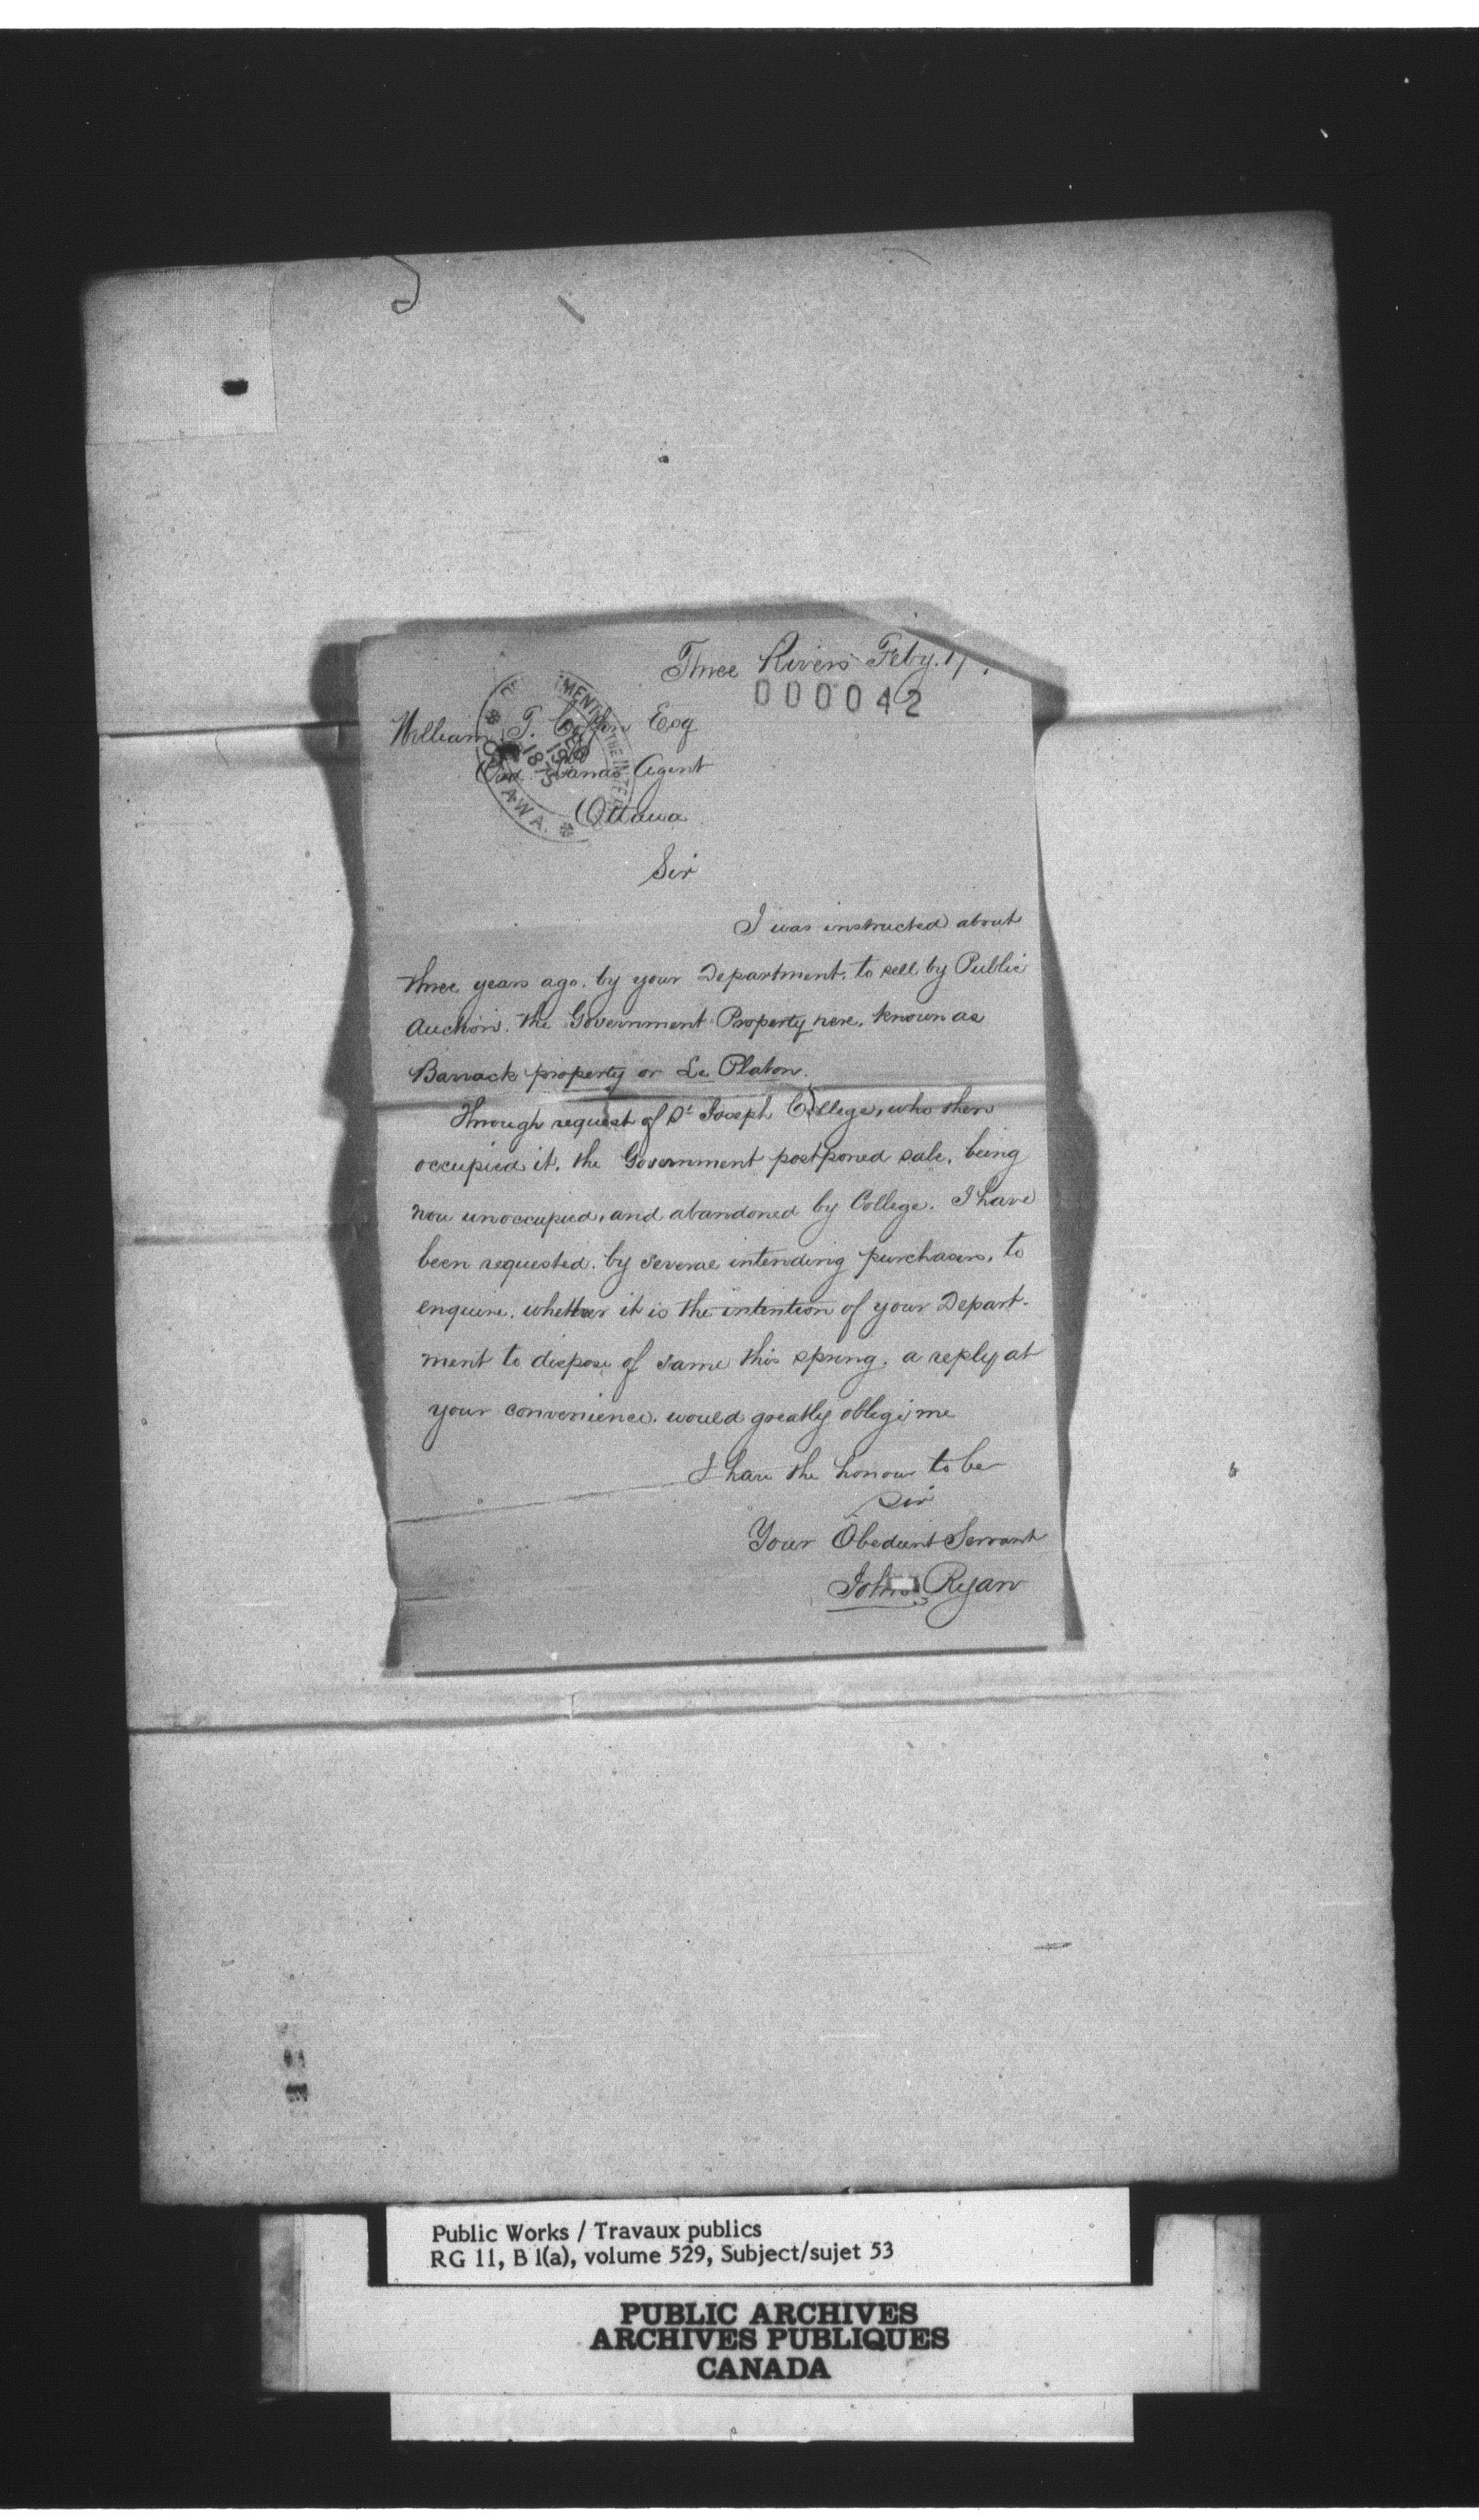 Three Rivers Feby. 17
000042
William T. Coffin Esq
DEPARTMENT OF THE INTERIOR
FEB 19 1875
OTTAWA.
Ord. Lands Agent
Ottawa
Sir
I was instructed about
three years ago. by your Department. to sell by Public
Auction. the Government Property here, known as
Barrack property or Le Platon.
Through request of St Joseph College, who then
occupied it, the Government postponed sale, being
now unoccupied, and abandoned by College. I have
been requested. by several intending purchasers, to
enquire. whether it is the intention of your Depart-
ment to dispose of same this spring. a reply at
your convenience. would greatly oblige me
I have the honour to be
Sir
Your Obedient Servant
John Ryan
Public Works / Travaux publics
RG 11, B 1(a), volume 529, Subject/sujet 53
PUBLIC ARCHIVES
ARCHIVES PUBLIQUES
CANADA